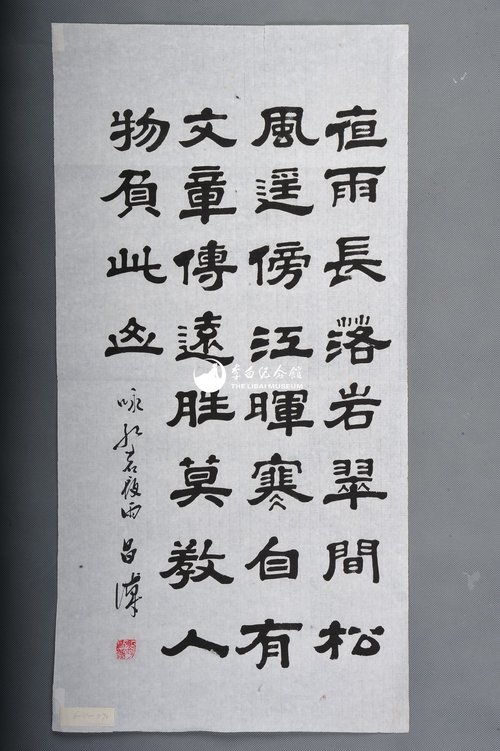 夜雨長落岩翠間松
風遥傍江暉寒自有
文章傳遠胜莫教人
物負此
咏红岩夜雨 昌
李白纪念館
THE LIBAI MUSEUM